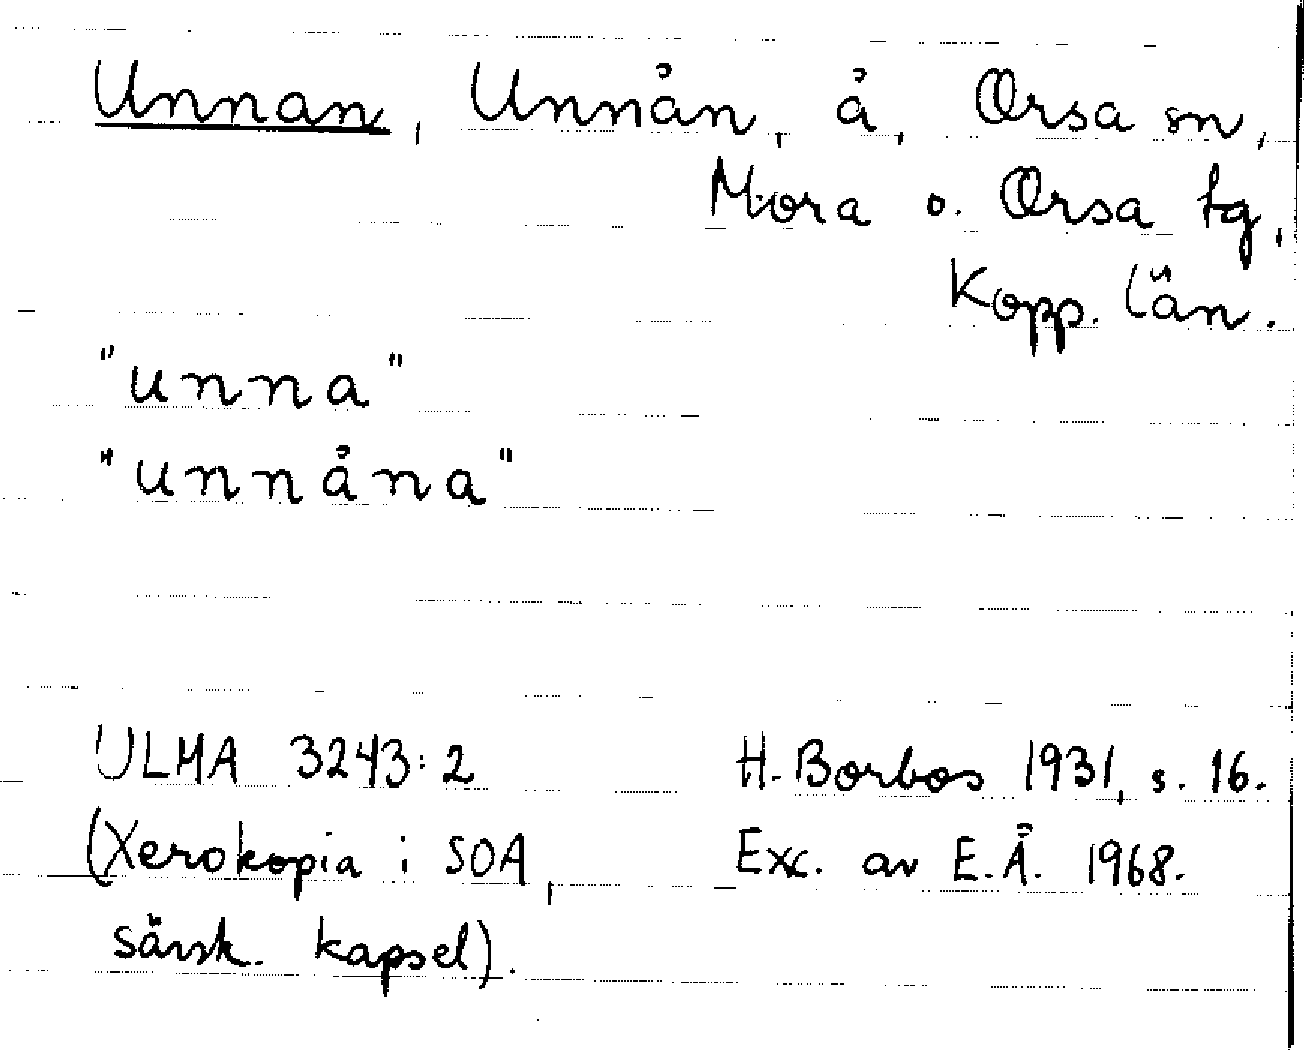 Unnan, Unnån, å, Orsa sn,
Mora o. Orsa tg,
Kopp. län.
"unna"
"unnåna"
ULMA 3243:2
H. Borbos 1931, s. 16.
(Xerokopia i SOA,
Exc. av E.Å. 1968.
särsk. kapsel).